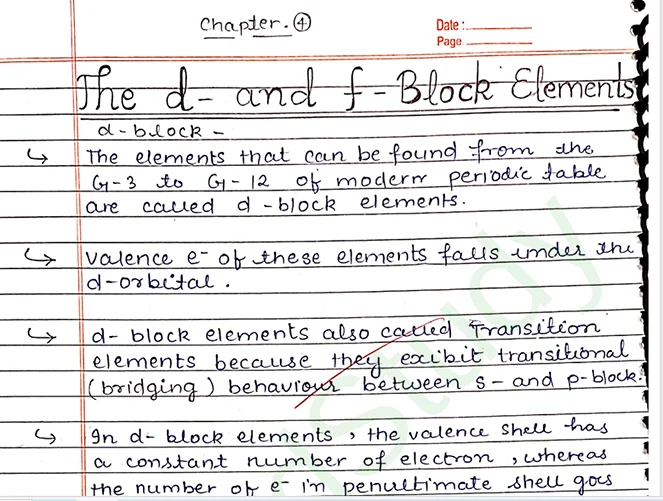 Chapter. ④
Date :
Page
The d- and f-Block Elements
d-block -
↳ The elements that can be found from the
G-3 to G-12 of modern periodic table
are called d-block elements.
↳ Valence e⁻ of these elements falls under the
d-orbital.
↳ d-block elements also called Transition
elements because they exibit transitional
(bridging) behaviour between s- and p-block.
↳ In d-block elements, the valence shell has
a constant number of electron, whereas
the number of e⁻ in penultimate shell goes
Study